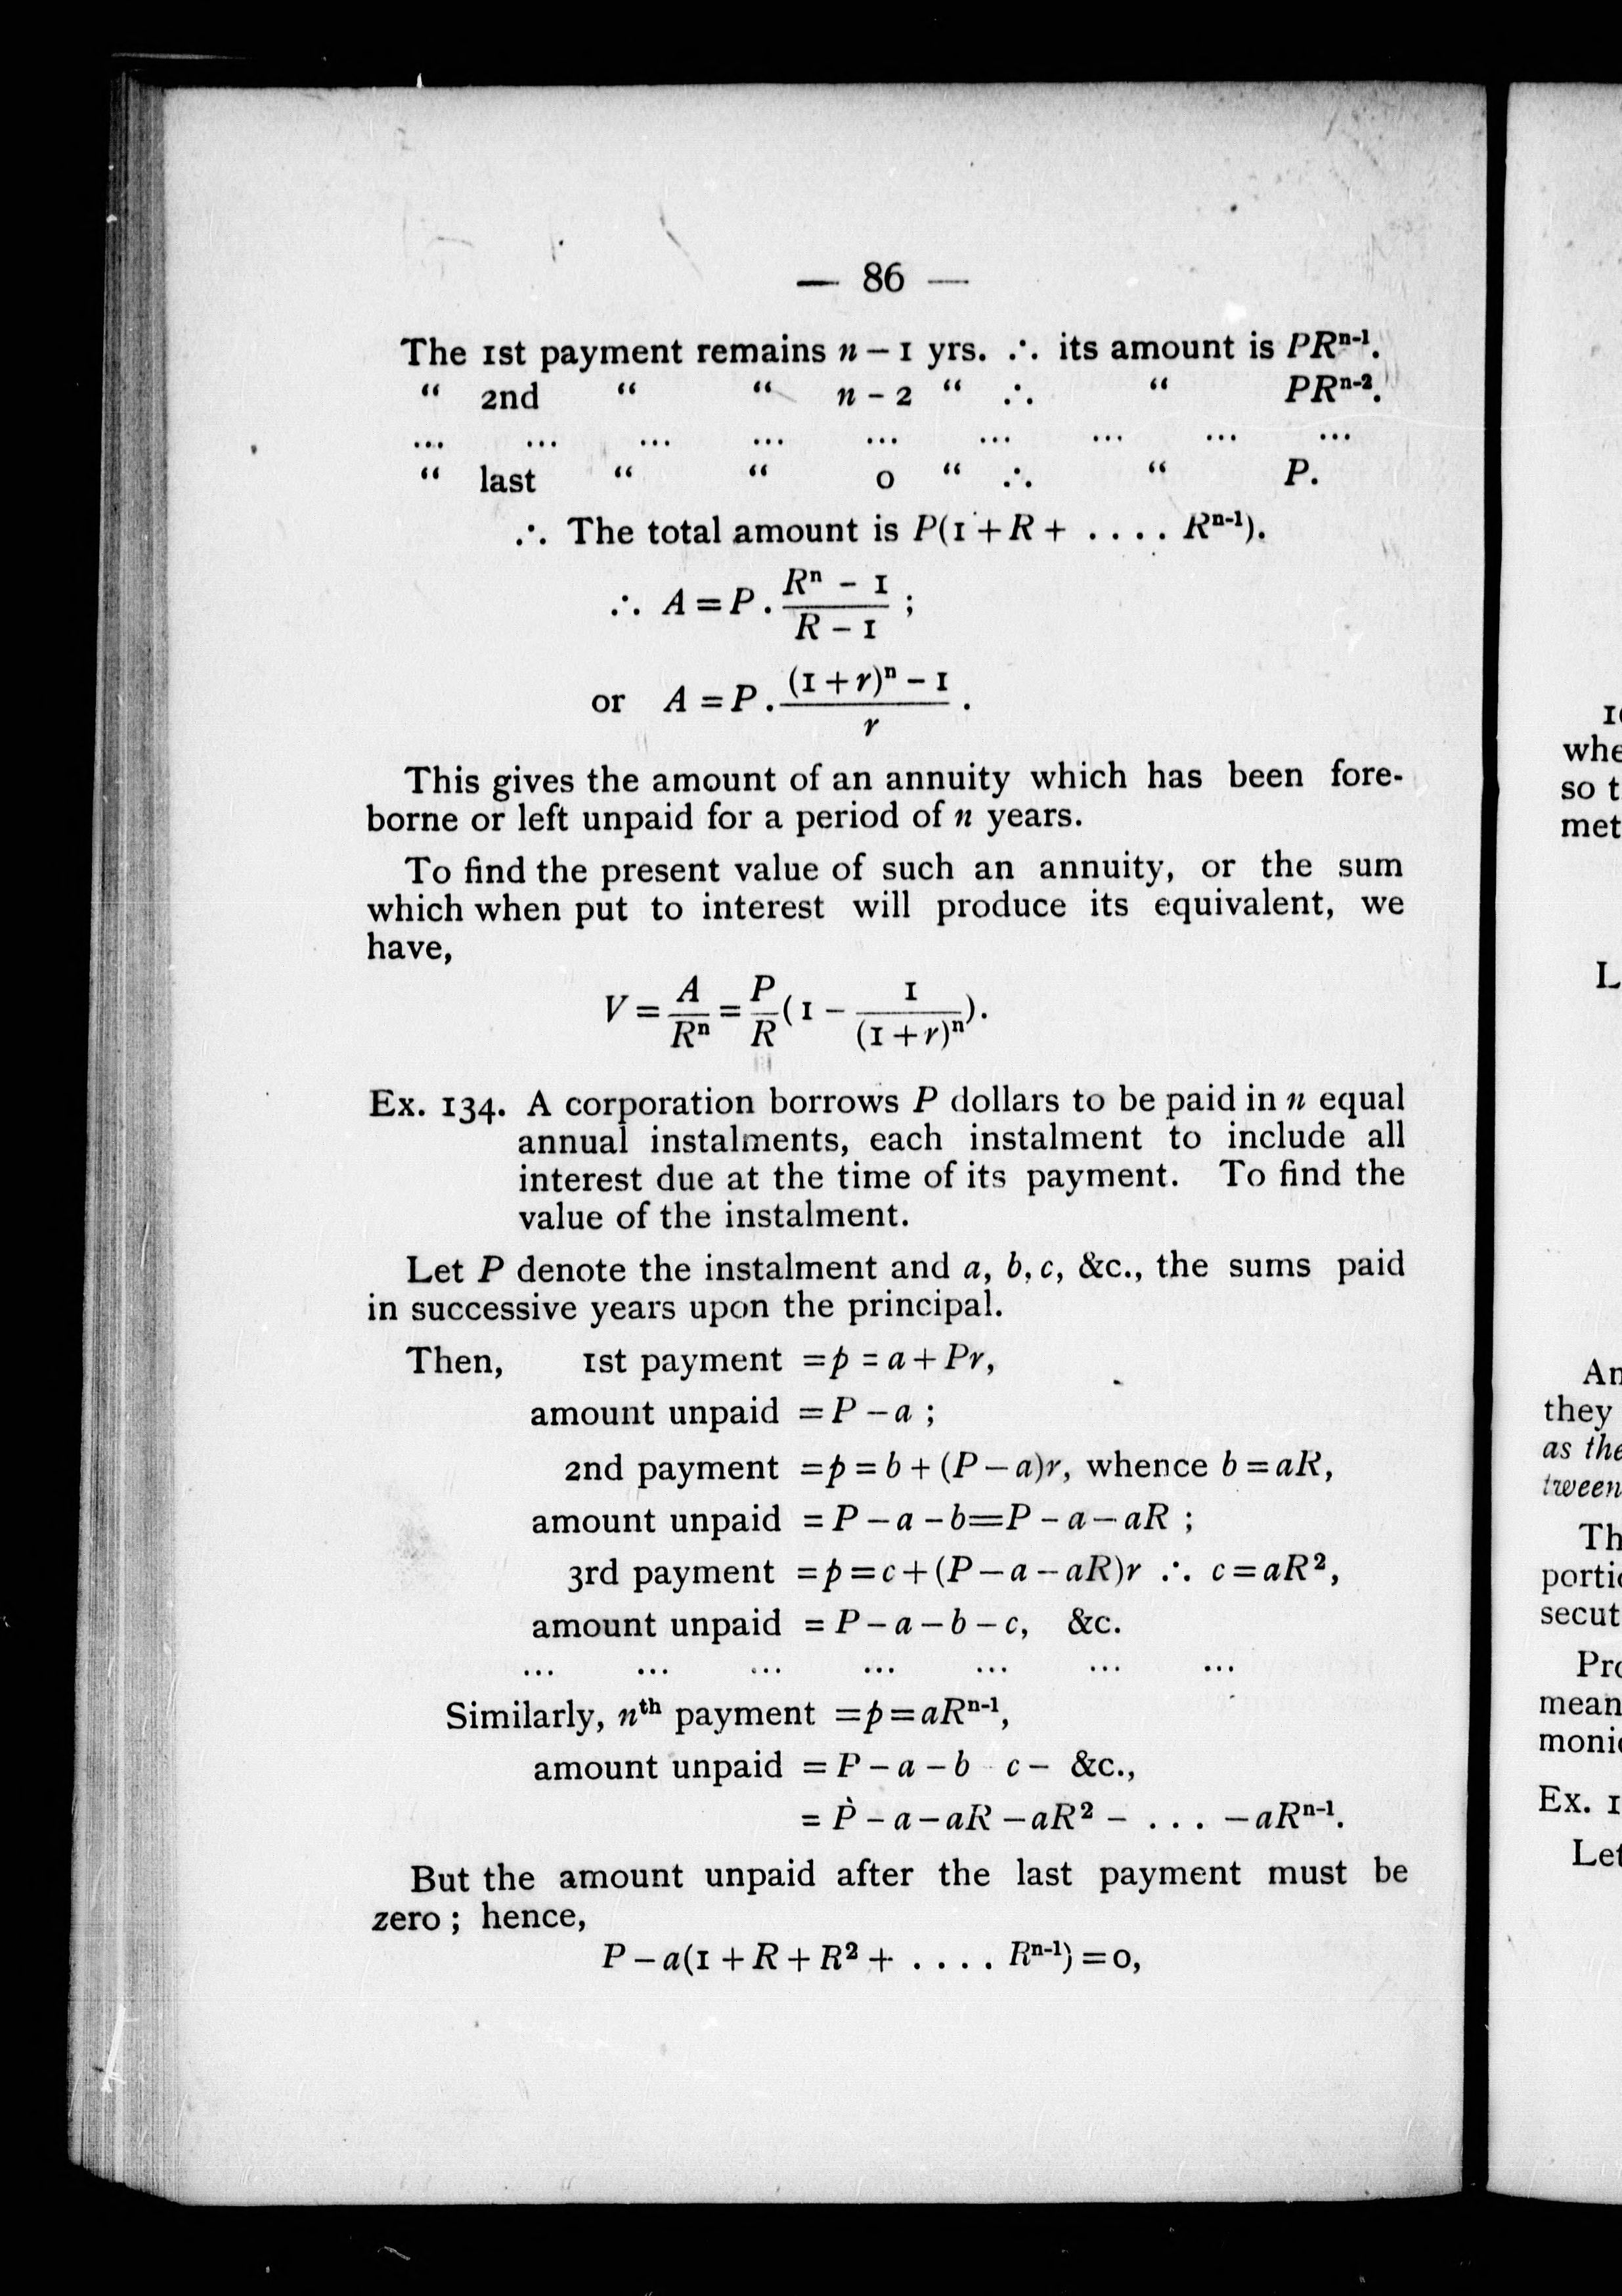 — 86 —
The 1st payment remains n – 1 yrs. ∴ its amount is PRⁿ⁻¹.
“ 2nd “ “ n – 2 “ ∴ “ PRⁿ⁻².
... ... ... ... ... ... ... ... ...
“ last “ “ 0 “ ∴ “ P.
∴ The total amount is P(1 + R + .... Rⁿ⁻¹).
∴ A = P . (Rⁿ – 1)/(R – 1) ;
or A = P . ((1 + r)ⁿ – 1)/r .
This gives the amount of an annuity which has been fore-
borne or left unpaid for a period of n years.
To find the present value of such an annuity, or the sum
which when put to interest will produce its equivalent, we
have,
V = A/Rⁿ = P/R (1 – 1/(1 + r)ⁿ).
Ex. 134. A corporation borrows P dollars to be paid in n equal
annual instalments, each instalment to include all
interest due at the time of its payment. To find the
value of the instalment.
Let P denote the instalment and a, b, c, &c., the sums paid
in successive years upon the principal.
Then, 1st payment = p = a + Pr,
amount unpaid = P – a ;
2nd payment = p = b + (P – a)r, whence b = aR,
amount unpaid = P – a – b = P – a – aR ;
3rd payment = p = c + (P – a – aR)r ∴ c = aR²,
amount unpaid = P – a – b – c, &c.
... ... ... ... ... ... ...
Similarly, nᵗʰ payment = p = aRⁿ⁻¹,
amount unpaid = P – a – b c – &c.,
= P – a – aR – aR² – ... – aRⁿ⁻¹.
But the amount unpaid after the last payment must be
zero ; hence,
P – a(1 + R + R² + .... Rⁿ⁻¹) = 0,
whe
so t
met
L
An
they
as the
tween
Th
porti
secut
Pro
mean
moni
Ex. 1
Let